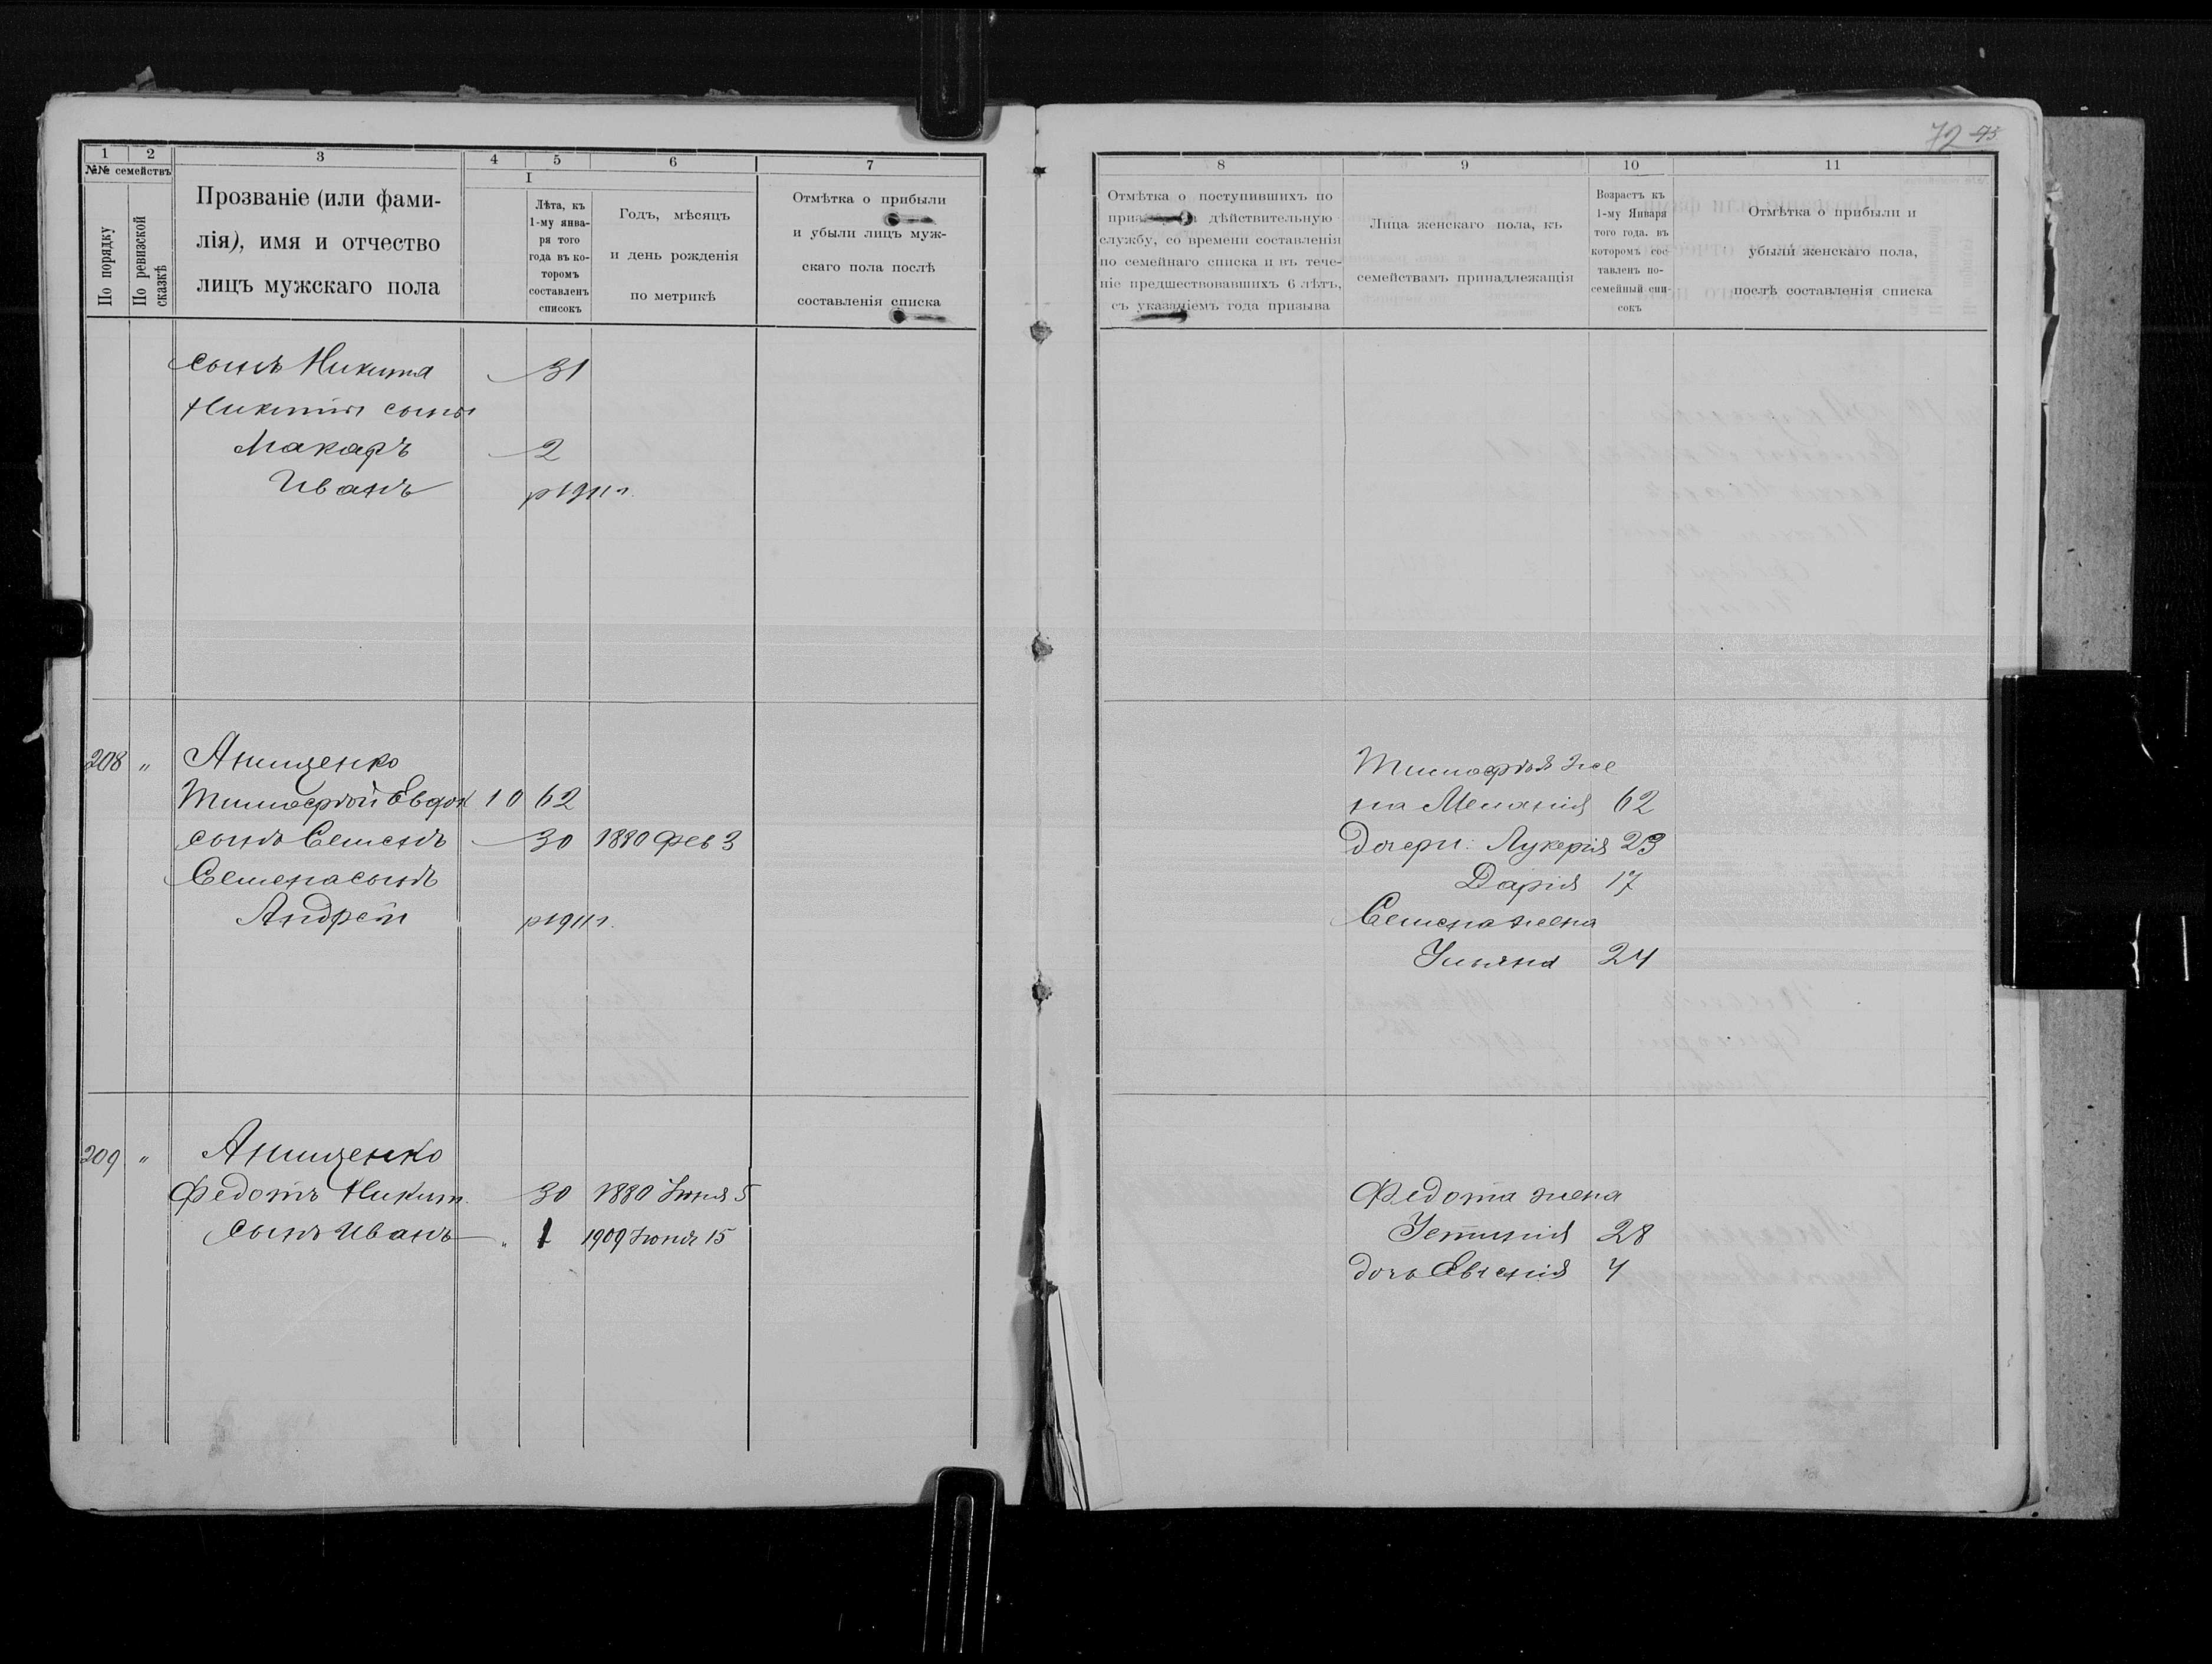 1 2 3 4 5 6 7
№№ семействъ
По порядку
По ревизской сказкѣ
Прозваніе (или фами-
лія), имя и отчество
лицъ мужскаго пола
I
Лѣта, къ
1-му янва-
ря того
года въ ко-
торомъ
составленъ
списокъ
Годъ, мѣсяцъ
и день рожденія
по метрикѣ
Отмѣтка о прибыли
и убыли лицъ муж-
скаго пола послѣ
составленія списка
сынъ Никита 31
Никиты сыны
Макаръ 2
Иванъ р 1911 г.
208 " Анищенко
Тимофѣй Евдок 10 62
сынъ Семенъ 30 1880 Фев 3
Семена сынъ
Андрей р 1911 г.
209 " Анищенко
Федотъ Никит. 30 1880 Іюня 5
Сынъ Иванъ " 1 1909 Іюня 15
72 73
8 9 10 11
Отмѣтка о поступившихъ по
дѣйствительную
службу, со времени составленія
по семейнаго списка и въ тече-
ніе предшествовавшихъ 6 лѣтъ,
съ указаніемъ года призыва
Лица женскаго пола, къ
семействамъ принадлежащія
Возрастъ къ
1-му Января
того года, въ
которомъ сос-
тавленъ по-
семейный спи-
сокъ
Отмѣтка о прибыли и
убыли женскаго пола,
послѣ составленія списка
Тимофѣя же
на Меланія 62
Дочери: Лукерія 23
Дарія 17
Семена жена
Ульяна 24
Федота жена
Устинія 28
дочь Евгенія 4